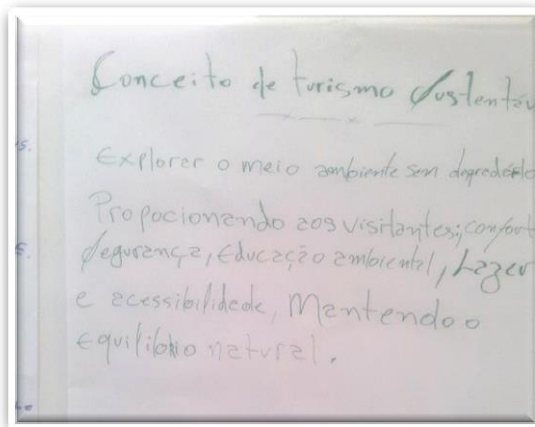 Conceito de turismo Sustentáv
Explorer o meio ambiente sem degredá-lo
Propocionando aos visitantes; confort
Segurança, Educação ambiental, Lazer
e acessibilidade, Mantendo o
Equilíbrio natural.
s.
e.